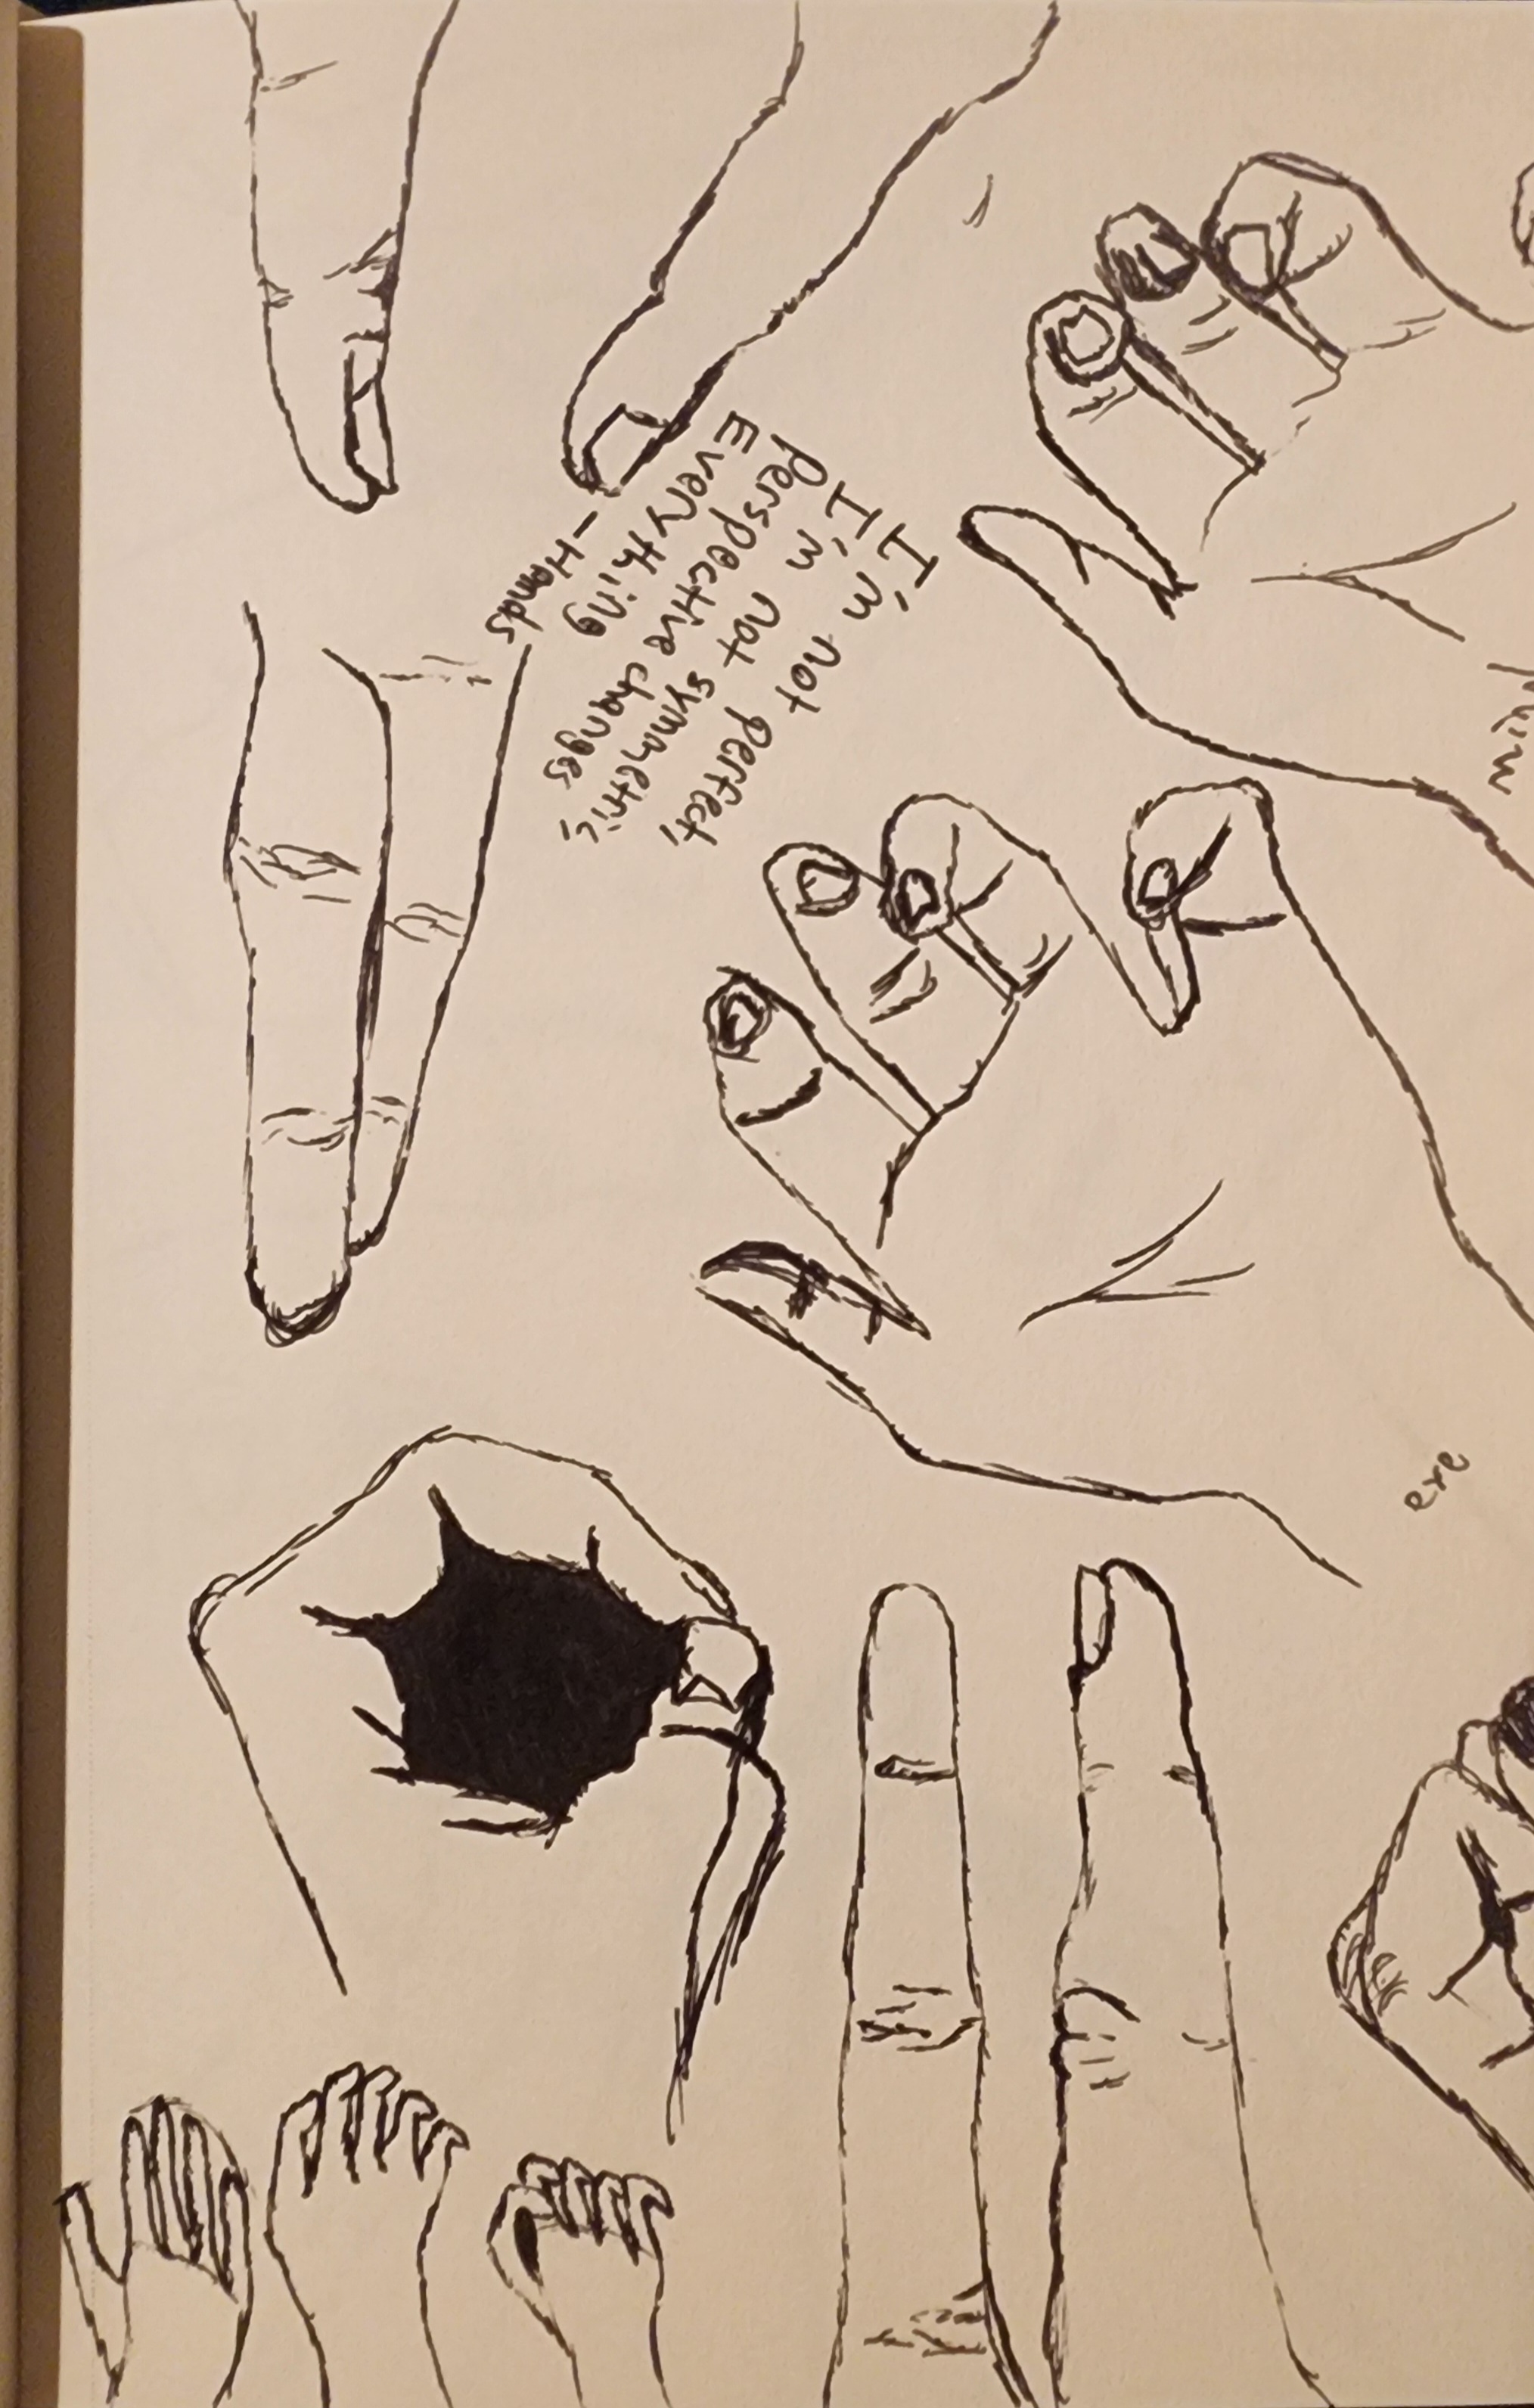 I'm not perfect,
I'm not symmetric,
Perspective changes
Everything
-Hands
ere